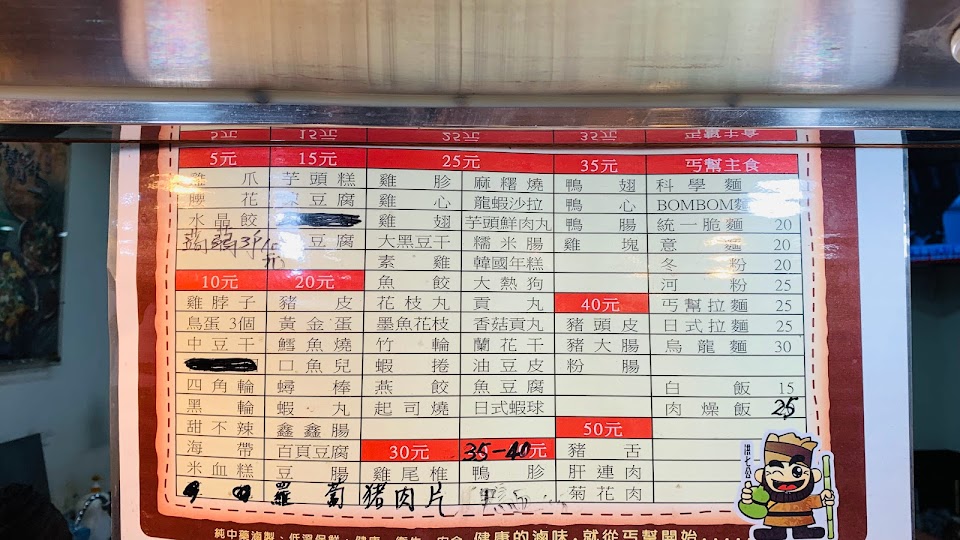 5元 15元 25元 35元 丐幫主食
雞爪 芋頭糕 雞胗 麻糬燒 鴨翅 科學麵
腰花 豆腐 雞心 龍蝦沙拉 鴨心 BOMBOM麵
水晶餃 雞翅 芋頭鮮肉丸 鴨腸 統一脆麵 20
豆腐 大黑豆干 糯米腸 雞塊 意麵 20
素雞 韓國年糕 冬粉 20
10元 20元 魚餃 大熱狗 河粉 25
雞脖子 豬皮 花枝丸 貢丸 40元 丐幫拉麵 25
鳥蛋3個 黃金蛋 墨魚花枝 香菇貢丸 豬頭皮 日式拉麵 25
中豆干 鱈魚燒 竹輪 蘭花干 豬大腸 烏龍麵 30
口魚兒 蝦捲 油豆皮 粉腸
四角輪 蟳棒 燕餃 魚豆腐 白飯 15
黑輪 蝦丸 起司燒 日式蝦球 肉燥飯 25
甜不辣 鑫鑫腸 50元
海帶 百頁豆腐 30元 35-40元 豬舌
米血糕 豆腸 雞尾椎 鴨胗 肝連肉
蘿蔔 豬肉片 菊花肉
純中藥滷製、低溫保鮮、健康、衛生、安全 健康的滷味,就從丐幫開始....